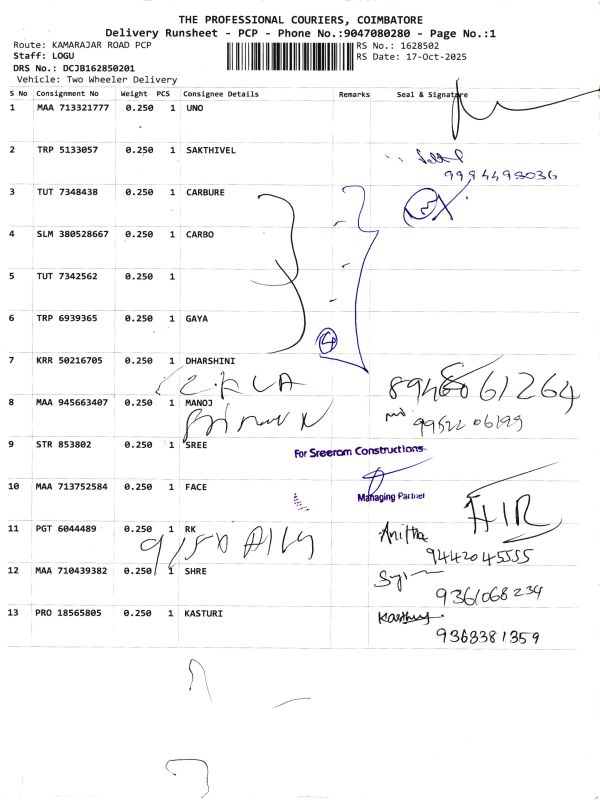 THE PROFESSIONAL COURIERS, COIMBATORE
Delivery Runsheet - PCP - Phone No.:9047080280 - Page No.:1
Route: KAMARAJAR ROAD PCP RS No.: 1628502
Staff: LOGU RS Date: 17-Oct-2025
DRS No.: DCJB162850201
Vehicle: Two Wheeler Delivery
S No Consignment No Weight PCS Consignee Details Remarks Seal & Signature
1 MAA 713321777 0.250 1 UNO
2 TRP 5133057 0.250 1 SAKTHIVEL
9994495036
3 TUT 7348438 0.250 1 CARBURE
4 SLM 380528667 0.250 1 CARBO
5 TUT 7342562 0.250 1
6 TRP 6939365 0.250 1 GAYA
4
7 KRR 50216705 0.250 1 DHARSHINI
8 MAA 945663407 0.250 1 MANOJ
9952206199
9 STR 853802 0.250 1 SREE
For Sreeram Constructions
10 MAA 713752584 0.250 1 FACE
Managing Partner
11 PGT 6044489 0.250 1 RK
Anitha
9442045555
12 MAA 710439382 0.250 1 SHRE
9361068234
13 PRO 18565805 0.250 1 KASTURI
9363381359